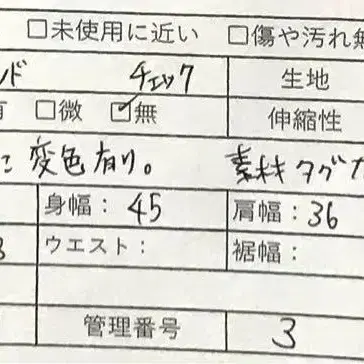 □未使用に近い □傷や汚れ無
ド チェック 生地
有 □微 ☑無 伸縮性
に変色有り。 素材タグ
身幅： 45 肩幅： 36
ウエスト： 裾幅：
管理番号 3